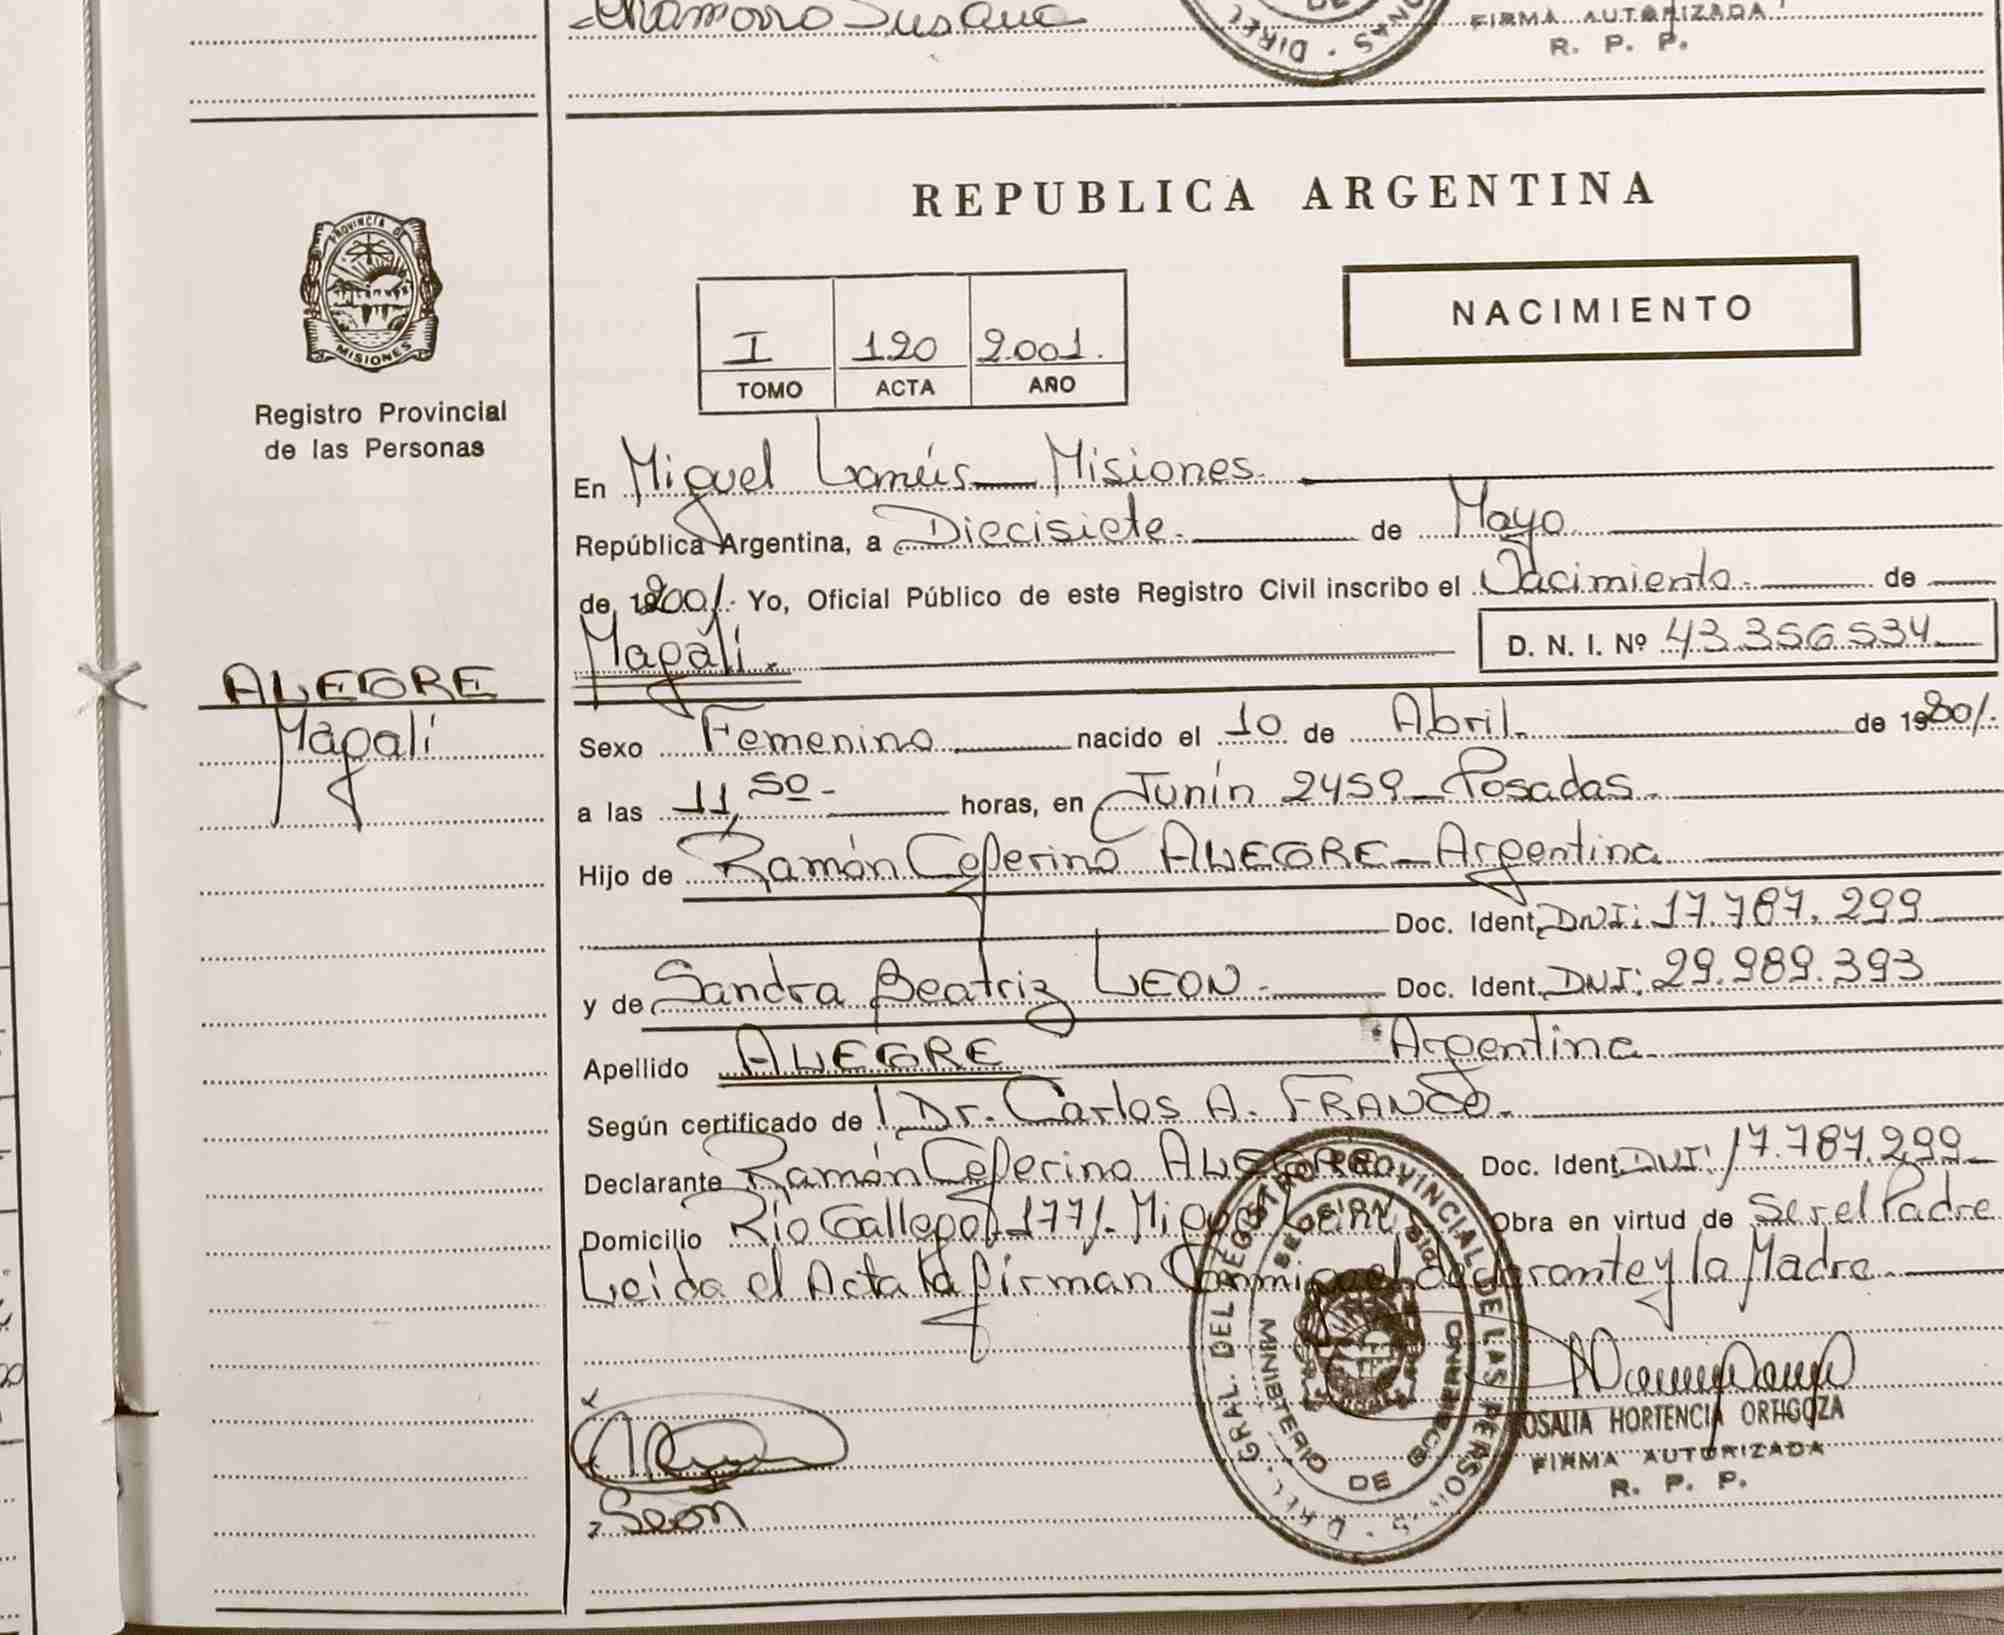 Chamorro Susana
FIRMA AUTORIZADA
R. P. P.
REPUBLICA ARGENTINA
PROVINCIA DE
MISIONES
Registro Provincial
de las Personas
I 120 2.001.
TOMO ACTA AÑO
NACIMIENTO
En Miguel Lanús Misiones.
República Argentina, a Diecisiete. de Mayo
de 1200/. Yo, Oficial Público de este Registro Civil inscribo el Nacimiento. de
Magalí. D. N. I. Nº 43.356.534
ALEGRE
Magalí
Sexo Femenino nacido el 10 de Abril. de 19200/.
a las 11,50- horas, en Junín 2459 Posadas.
Hijo de Ramón Ceferino ALEGRE Argentina
Doc. Ident. DNI: 17.787.299
y de Sandra Beatriz LEON. Doc. Ident. DNI: 29.989.393
Apellido ALEGRE Argentina
Según certificado de Dr. Carlos A. FRANCO.
Declarante Ramón Ceferino ALEGRE Doc. Ident. DNI: 17.787.299
Domicilio Río Gallegos 177/. Miguel Lanús Obra en virtud de Ser el Padre
Leida el Acta la firman Conmigo el declarante y la Madre
ROSALIA HORTENCIA ORTIGOZA
FIRMA AUTORIZADA
R. P. P.
DIREC. GRAL. DEL REGISTRO PROVINCIAL DE LAS PERSONAS
MINISTERIO DE GOBIERNO
Leon